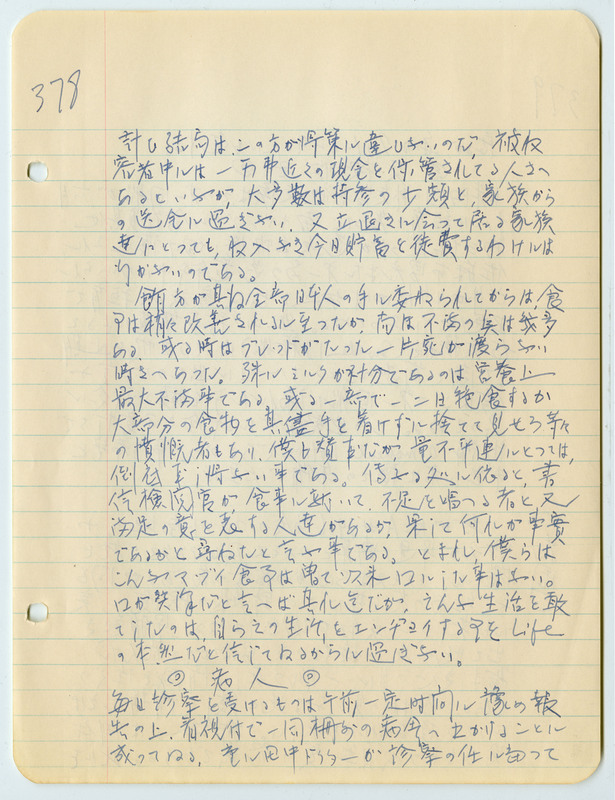 378
計し結局は、この方が得策に違ひないのだ、被収
容者中には一万弗近くの現金を保管されてる人さへ
あるといふが、大多数は持参の少額と、家族から
の送金に過ぎない、又立退きに会って居る家族
達にとっても、収入なき今日貯畜を徒費するわけには
行かないのである。
賄方が其ね全部日本人の手に委ねられてからは、食
事は稍々改善されるに至ったが、尚ほ不満の点は幾多
ある、或る時はブレッドがたった一片宛しか渡らない
時さへあった。殊にミルクが不十分であるのは営養上
最大不満事である。或る一部で一、二日絶食するか
大部分の食物を其儘手を着けずに捨てて見せろ等々
の憤慨者もあり、僕も賛成だが、量不平連にとっては、
到底出来得ない事である。傳ふる処に依ると、書
信検閲官が食事に就いて、不足を唱へる者と又
満足の意を表する人達があるが、果して何れが事實
であるかと尋ねたと言ふ事である。ともあれ、僕らは
こんなマヅイ食事は曽て以来口にした事はない。
口が贅澤だと言へば其れ迄だが、そんな生活を敢
てしたのは、自らその生活をエンヂョイする事を Life
の本然だと信じてゐるからに過ぎない。
◎ 病人 ◎
毎日診察を受けるものは午前一定時間に豫め報
告の上、看視付で一同柵外の病舎へ出かけることに
成ってゐる、重に田中ドクターが診察の任に當って